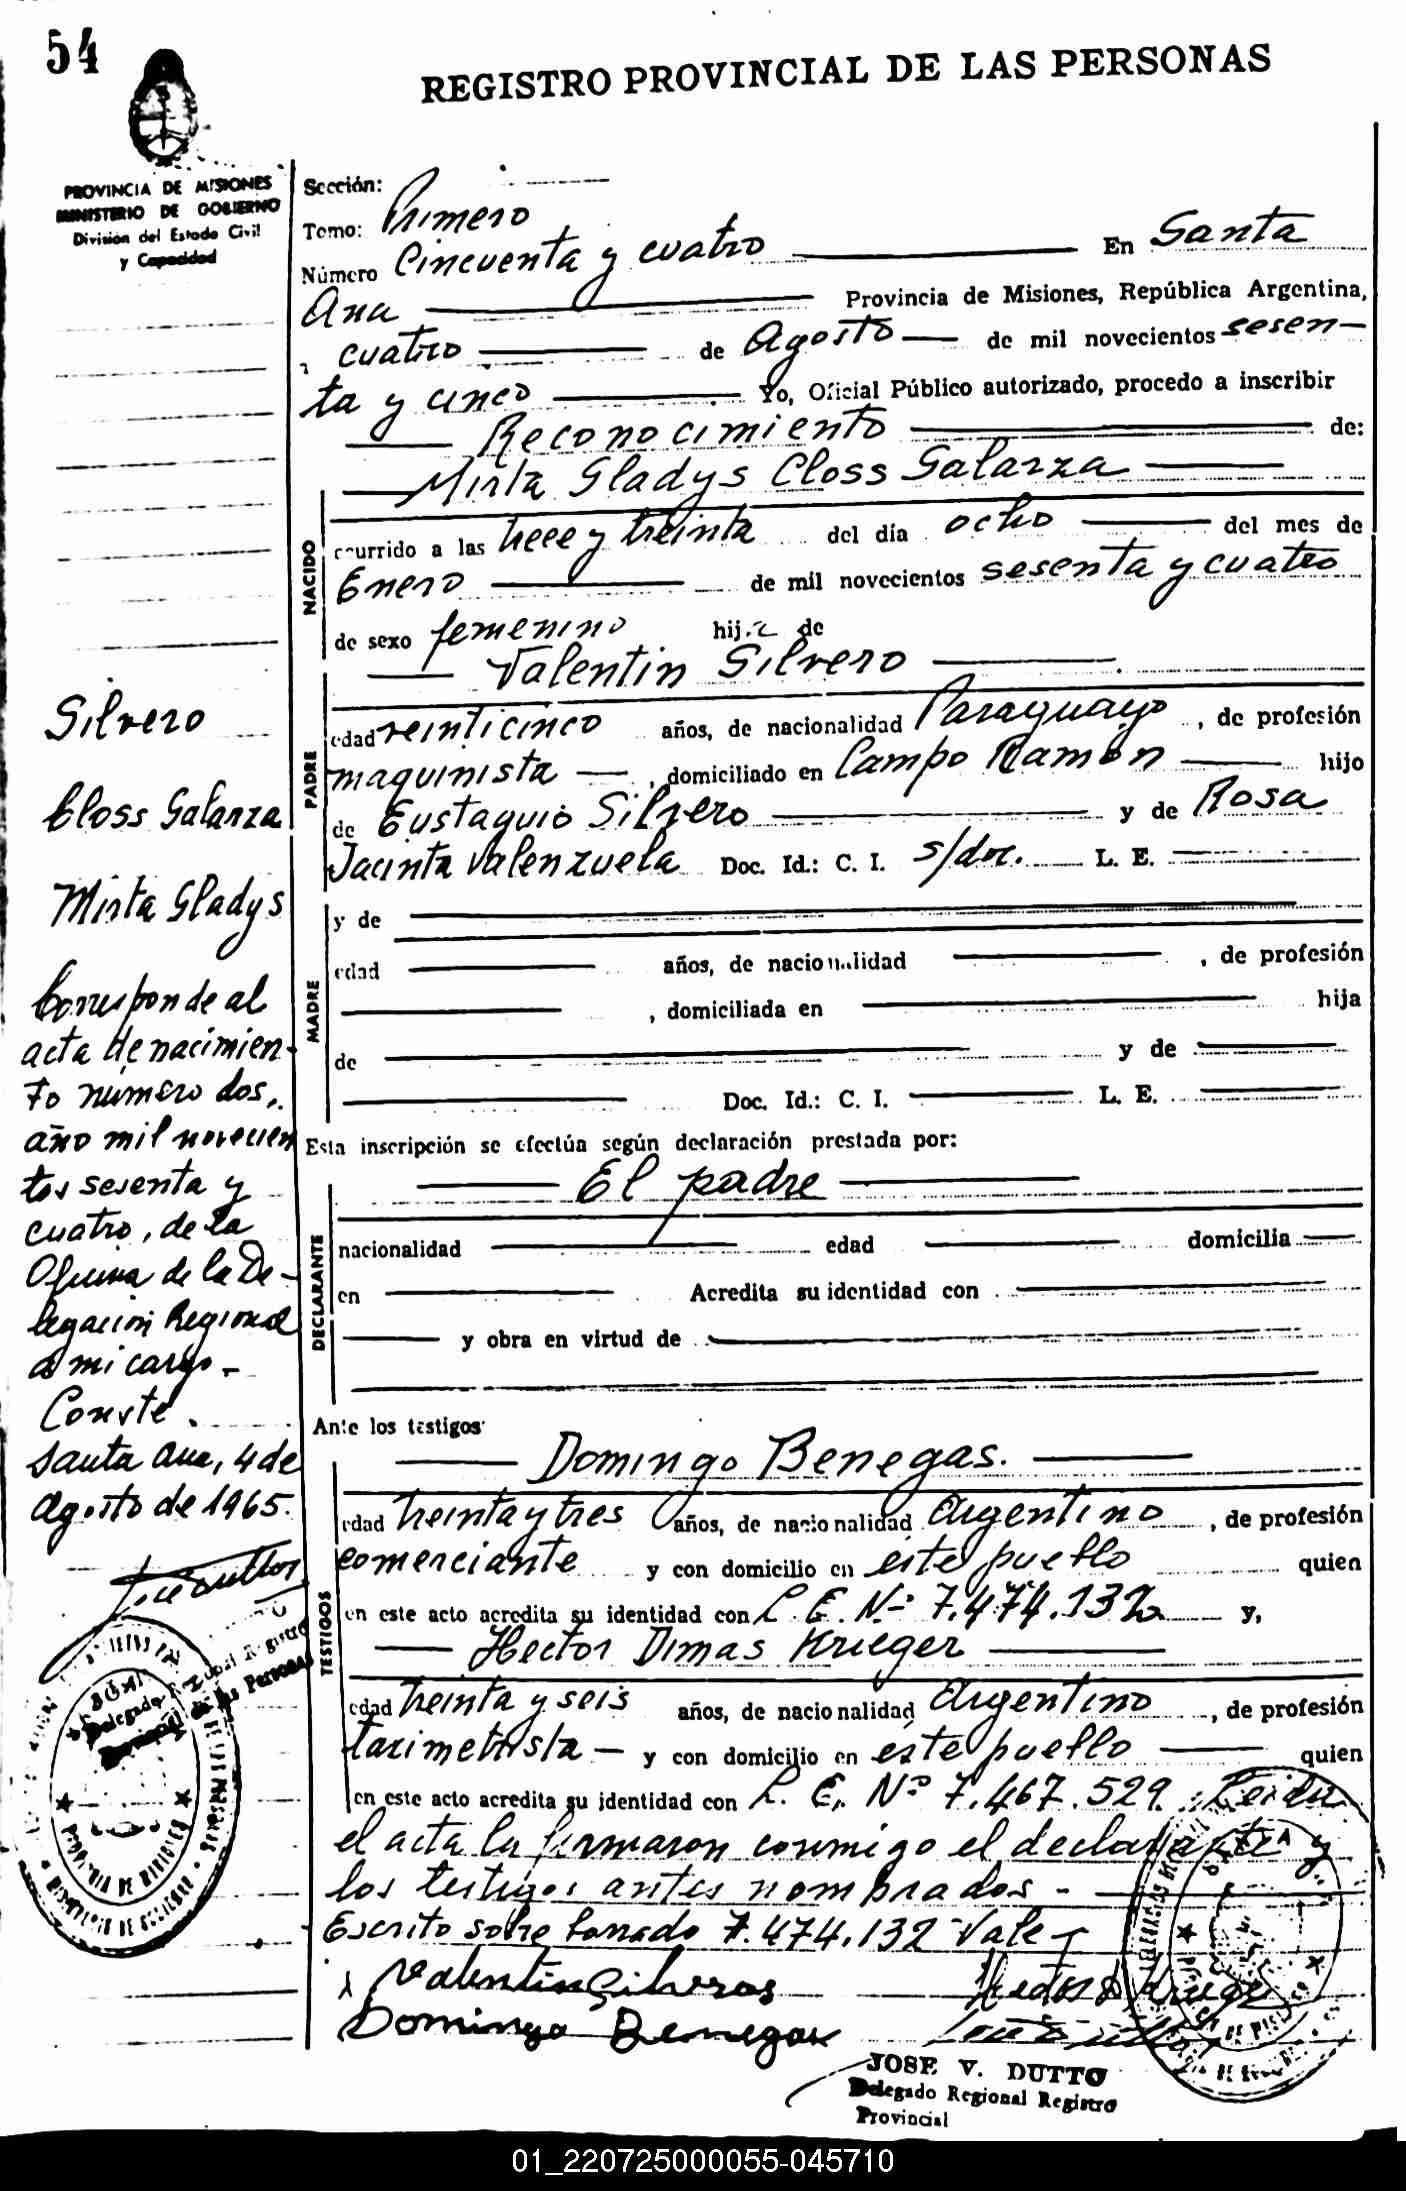 54
REGISTRO PROVINCIAL DE LAS PERSONAS
PROVINCIA DE MISIONES
MINISTERIO DE GOBIERNO
División del Estado Civil
y Capacidad
Sección:
Tomo: Primero
Número Cincuenta y cuatro En Santa
Ana Provincia de Misiones, República Argentina,
a cuatro de Agosto de mil novecientos sesen-
ta y cinco Yo, Oficial Público autorizado, procedo a inscribir
Reconocimiento de:
Mirta Gladys Closs Galarza
NACIDO
ocurrido a las trece y treinta del día ocho del mes de
Enero de mil novecientos sesenta y cuatro
de sexo femenino hija de
Valentin Silvero
PADRE
edad veinticinco años, de nacionalidad Paraguayo, de profesión
maquinista, domiciliado en Campo Ramón hijo
de Eustaquio Silvero y de Rosa
Jacinta Valenzuela Doc. Id.: C. I. s/doc. L. E.
MADRE
y de
edad años, de nacionalidad , de profesión
, domiciliada en hija
de y de
Doc. Id.: C. I. L. E.
Esta inscripción se efectúa según declaración prestada por:
El padre
DECLARANTE
nacionalidad edad domicilia
en Acredita su identidad con
y obra en virtud de
Ante los testigos
Domingo Benegas.
TESTIGOS
edad treinta y tres años, de nacionalidad Argentino, de profesión
comerciante y con domicilio en este pueblo quien
en este acto acredita su identidad con L. E. Nº 7.474.132 y,
Hector Dimas Krieger
edad treinta y seis años, de nacionalidad Argentino, de profesión
taximetrista - y con domicilio en este pueblo quien
en este acto acredita su identidad con L. E. Nº 7.467.529. Leída
el acta la firmaron conmigo el declarante y
los testigos antes nombrados -
Escrito sobre borrado 7.474.132 Vale
Valentin Silveros
Domingo Benegas
JOSE V. DUTTO
Delegado Regional Registro
Provincial
Silvero
Closs Galarza
Mirta Gladys
Corresponde al
acta de nacimien-
to número dos,
año mil novecien
tos sesenta y
cuatro, de la
Oficina de la De-
legación Regional
a mi cargo -
Conste.
Santa Ana, 4 de
Agosto de 1965.
01_220725000055-045710